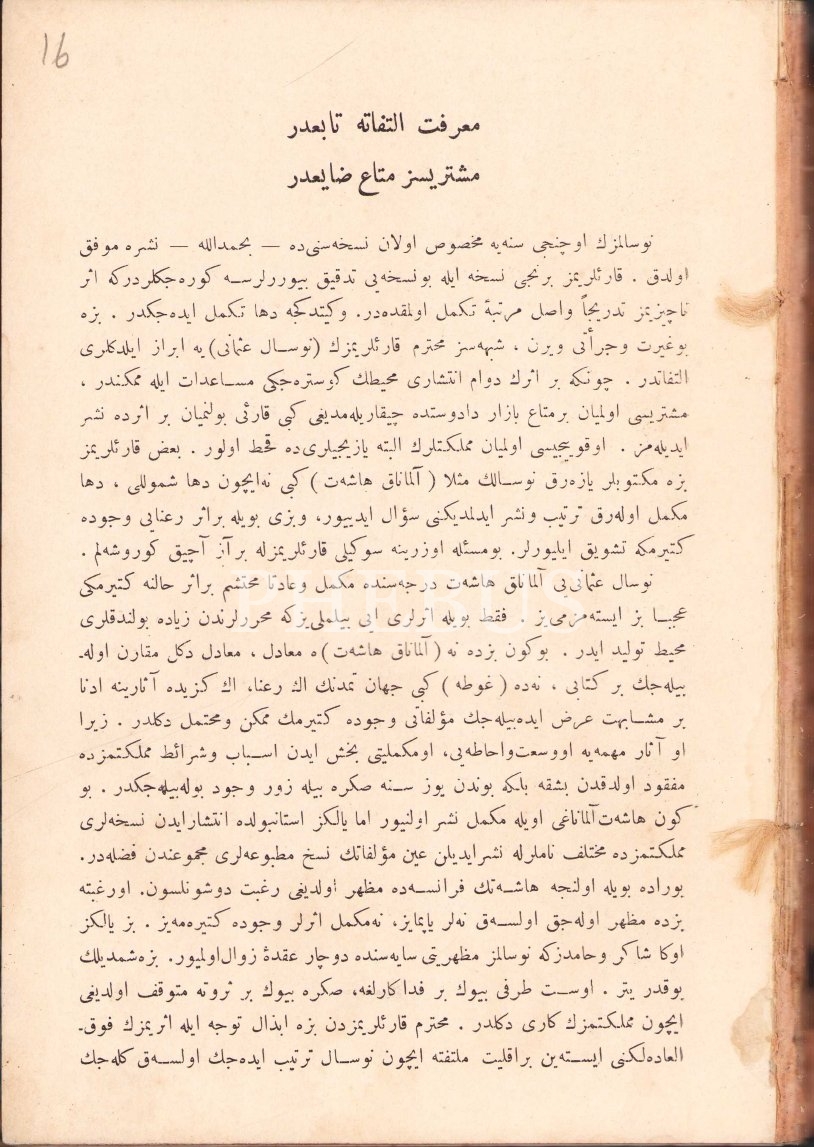 16
معرفت التفاته تابعدر
مشتریسز متاع ضایعدر
نوسالمزك اوچنجی سنه‌یه مخصوص اولان نسخه‌سنی‌ده — بحمدالله — نشره موفق
اولدق . قارئلریمز برنجی نسخه ایله بونسخه‌یی تدقیق بیوررلرسه كوره‌جكلردركه اثر
ناچیزیمز تدریجاً واصل مرتبهٔ تكمل اولمقده‌در. وكیتدكجه دها تكمل ایده‌جكدر . بزه
بوغیرت وجرأتی ویرن ، شبهه‌سز محترم قارئلریمزك (نوسال عثمانی) یه ابراز ایلدكلری
التفاتدر . چونكه بر اثرك دوام انتشاری محیطك كوستره‌جكی مساعدات ایله ممكندر ،
مشتریسی اولمیان برمتاع بازار دادوستده چیقاریله‌مدیغی كبی قارئی بولنمیان بر اثرده نشر
ایدیله‌مز . اوقوییجیسی اولمیان مملكتلرك البته یازیجیلری‌ده قحط اولور . بعض قارئلریمز
بزه مكتوبلر یازه‌رق نوسالك مثلا ( آلماناق هاشه‌ت ) كبی نه‌ایچون دها شموللی ، دها
مكمل اوله‌رق ترتیب ونشر ایدلمدیكنی سؤال ایدییور، وبزی بویله براثر رعنایی وجوده
كتیرمكه تشویق ایلیورلر. بومسئله اوزرینه سوكیلی قارئلریمزله برآز آچیق كوروشه‌لم .
نوسال عثمانی‌یی آلماناق هاشه‌ت درجه‌سنده مكمل وعادتا محتشم براثر حالنه كتیرمكی
عجبا بز ایسته‌مزمی‌یز . فقط بویله اثرلری ایی بیلملی‌یزكه محررلرندن زیاده بولندقلری
محیط تولید ایدر . بوكون بزده نه ( آلماناق هاشه‌ت ) ه معادل ، معادل دكل مقارن اوله‌ـ
بیله‌جك بر كتابی ، نه‌ده ( غوطه ) كبی جهان تمدنك اك رعنا، اك كزیده آثارینه ادنا
بر مشابهت عرض ایده‌بیله‌جك مؤلفاتی وجوده كتیرمك ممكن ومحتمل دكلدر . زیرا
او آثار مهمه‌یه اووسعت‌واحاطه‌یی، اومكملیتی بخش ایدن اسباب وشرائط مملكتمزده
مفقود اولدقدن بشقه بلكه بوندن یوز سنه صكره بیله زور وجود بوله‌بیله‌جكدر . بو
كون هاشه‌ت‌آلماناغی اویله مكمل نشر اولنیور اما یالكز استانبولده انتشارایدن نسخه‌لری
مملكتمزده مختلف ناملرله نشرایدیلن عین مؤلفاتك نسخ مطبوعه‌لری مجموعندن فضله‌در.
بوراده بویله اولنجه هاشه‌تك فرانسه‌ده مظهر اولدیغی رغبت دوشونلسون. اورغبته
بزده مظهر اوله‌جق اولسه‌ق نه‌لر یاپمایز، نه‌مكمل اثرلر وجوده كتیره‌مه‌یز . بز یالكز
اوكا شاكر وحامدزكه نوسالمز مظهریتی سایه‌سنده دوچار عقدهٔ زوال‌اولمیور. بزه‌شمدیلك
بوقدر یتر . اوست طرفی بیوك بر فداكارلغه، صكره بیوك بر ثروته متوقف اولدیغی
ایچون مملكتمزك كاری دكلدر . محترم قارئلریمزدن بزه ابذال توجه ایله اثریمزك فوق‌ـ
العاده‌لكنی ایسته‌ین براقلیت ملتفته ایچون نوسال ترتیب ایده‌جك اولسه‌ق كله‌جك